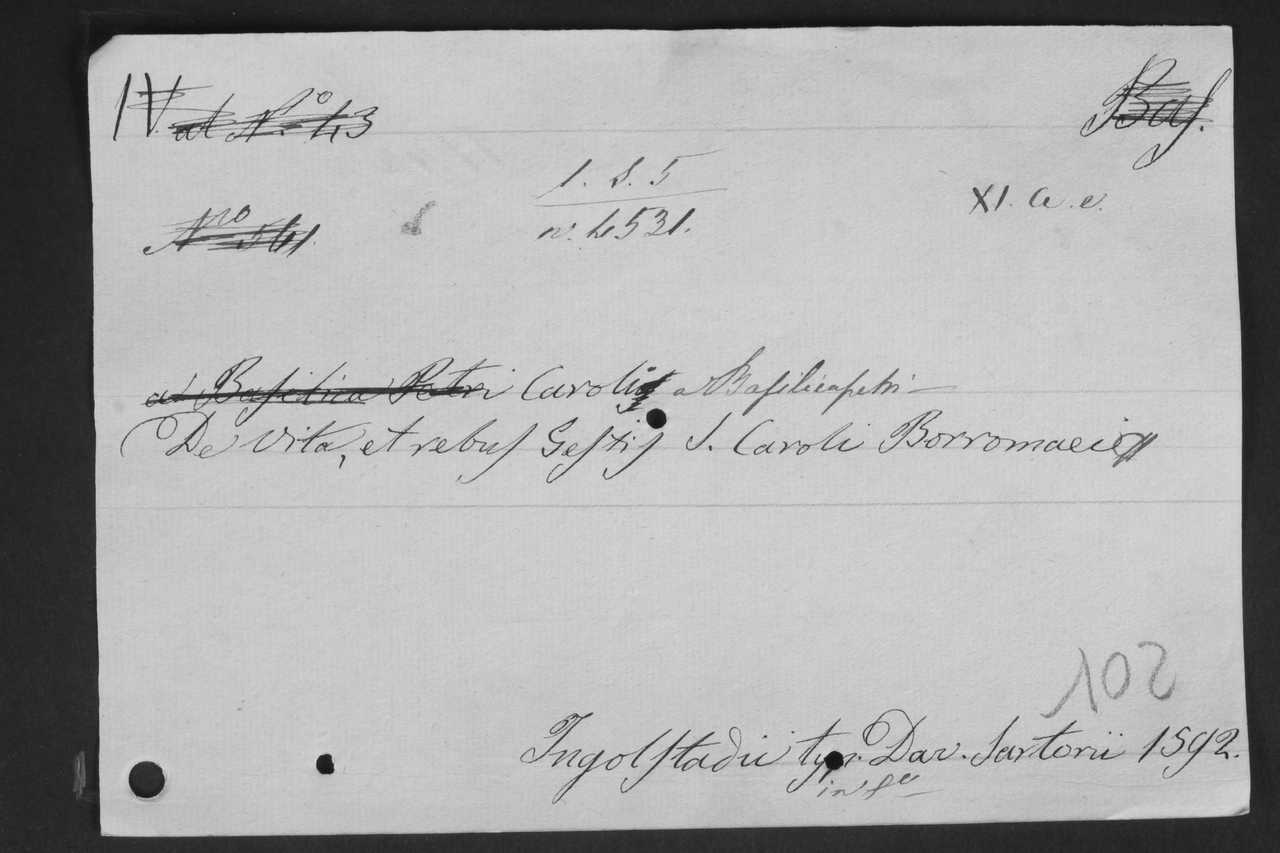 IV. ad N.o 43
Bas.
1. S. 5
XI. a. e.
Nro 561.
n. 4531.
a Basilica Petri Caroli a Basilicapetri
De Vita, et rebus Gestis S. Caroli Borromaei
102
Ingolstadii typ. Dav. Sartorii 1592.
in fo